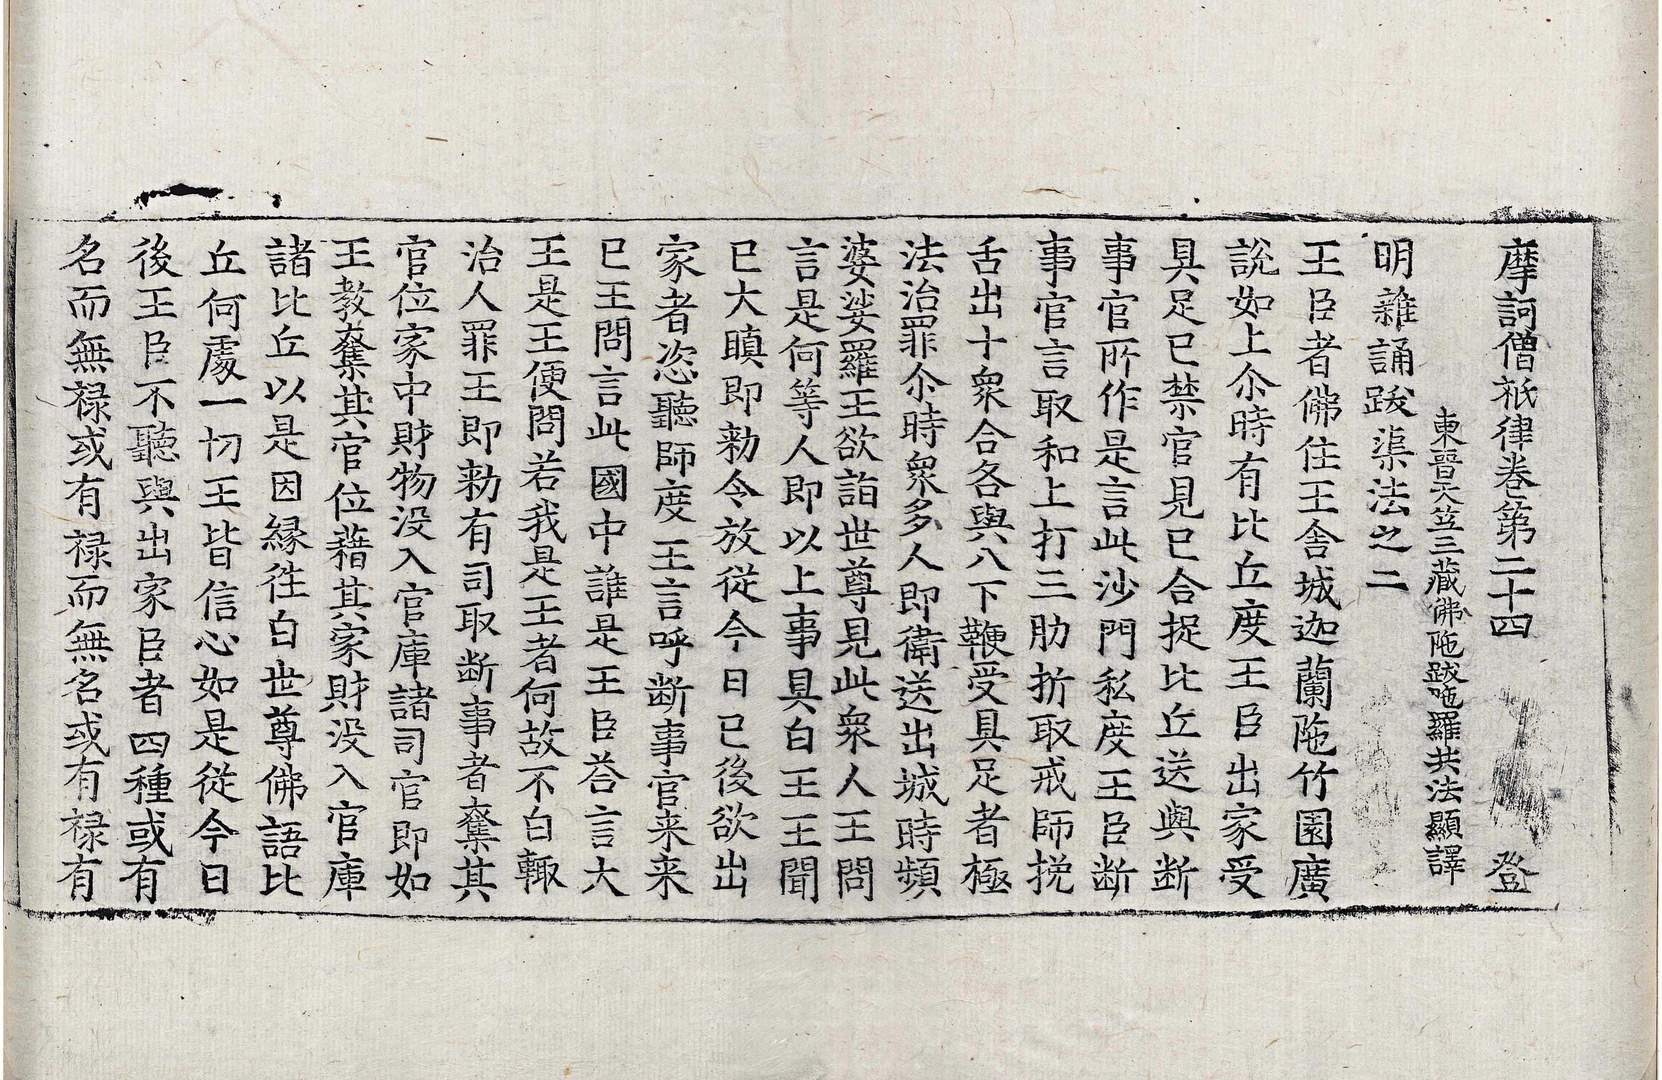 摩訶僧祇律卷第二十四 登
東晉天竺三藏佛陁跋陁羅共法顯譯
明雜誦跋渠法之二
王臣者佛住王舍城迦蘭陁竹園廣
說如上尒時有比丘度王臣出家受
具足已禁官見已合捉比丘送與断
事官所作是言此沙門私度王臣断
事官言取和上打三肋折取戒師挽
舌出十衆合各與八下鞭受具足者極
法治罪尒時衆多人即衛送出城時頻
婆娑羅王欲詣世尊見此衆人王問
言是何等人即以上事具白王王聞
已大瞋即勑令放從今日已後欲出
家者恣聽師度王言呼断事官来来
已王問言此國中誰是王臣荅言大
王是王便問若我是王者何故不白輙
治人罪王即勑有司取断事者奪其
官位家中財物没入官庫諸司官即如
王教奪其官位藉其家財没入官庫
諸比丘以是因緣徃白世尊佛語比
丘何處一切王皆信心如是從今日
後王臣不聽與出家臣者四種或有
名而無禄或有禄而無名或有禄有